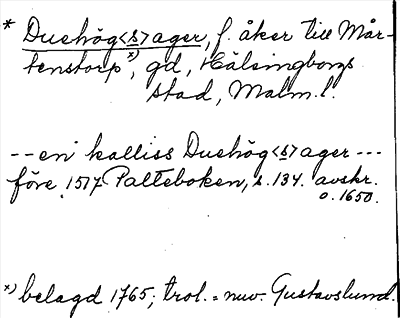 * Duehög<s>ager, f. åker till Mår-
tenstorp x), gd, Hälsingborgs
stad, Malm. l.
-- en kalliss Duehög<s>ager ---
före 1517 Palteboken, s. 134. avskr.
o. 1650.
x) belagd 1765; trol. = nuv. Gustavslund.